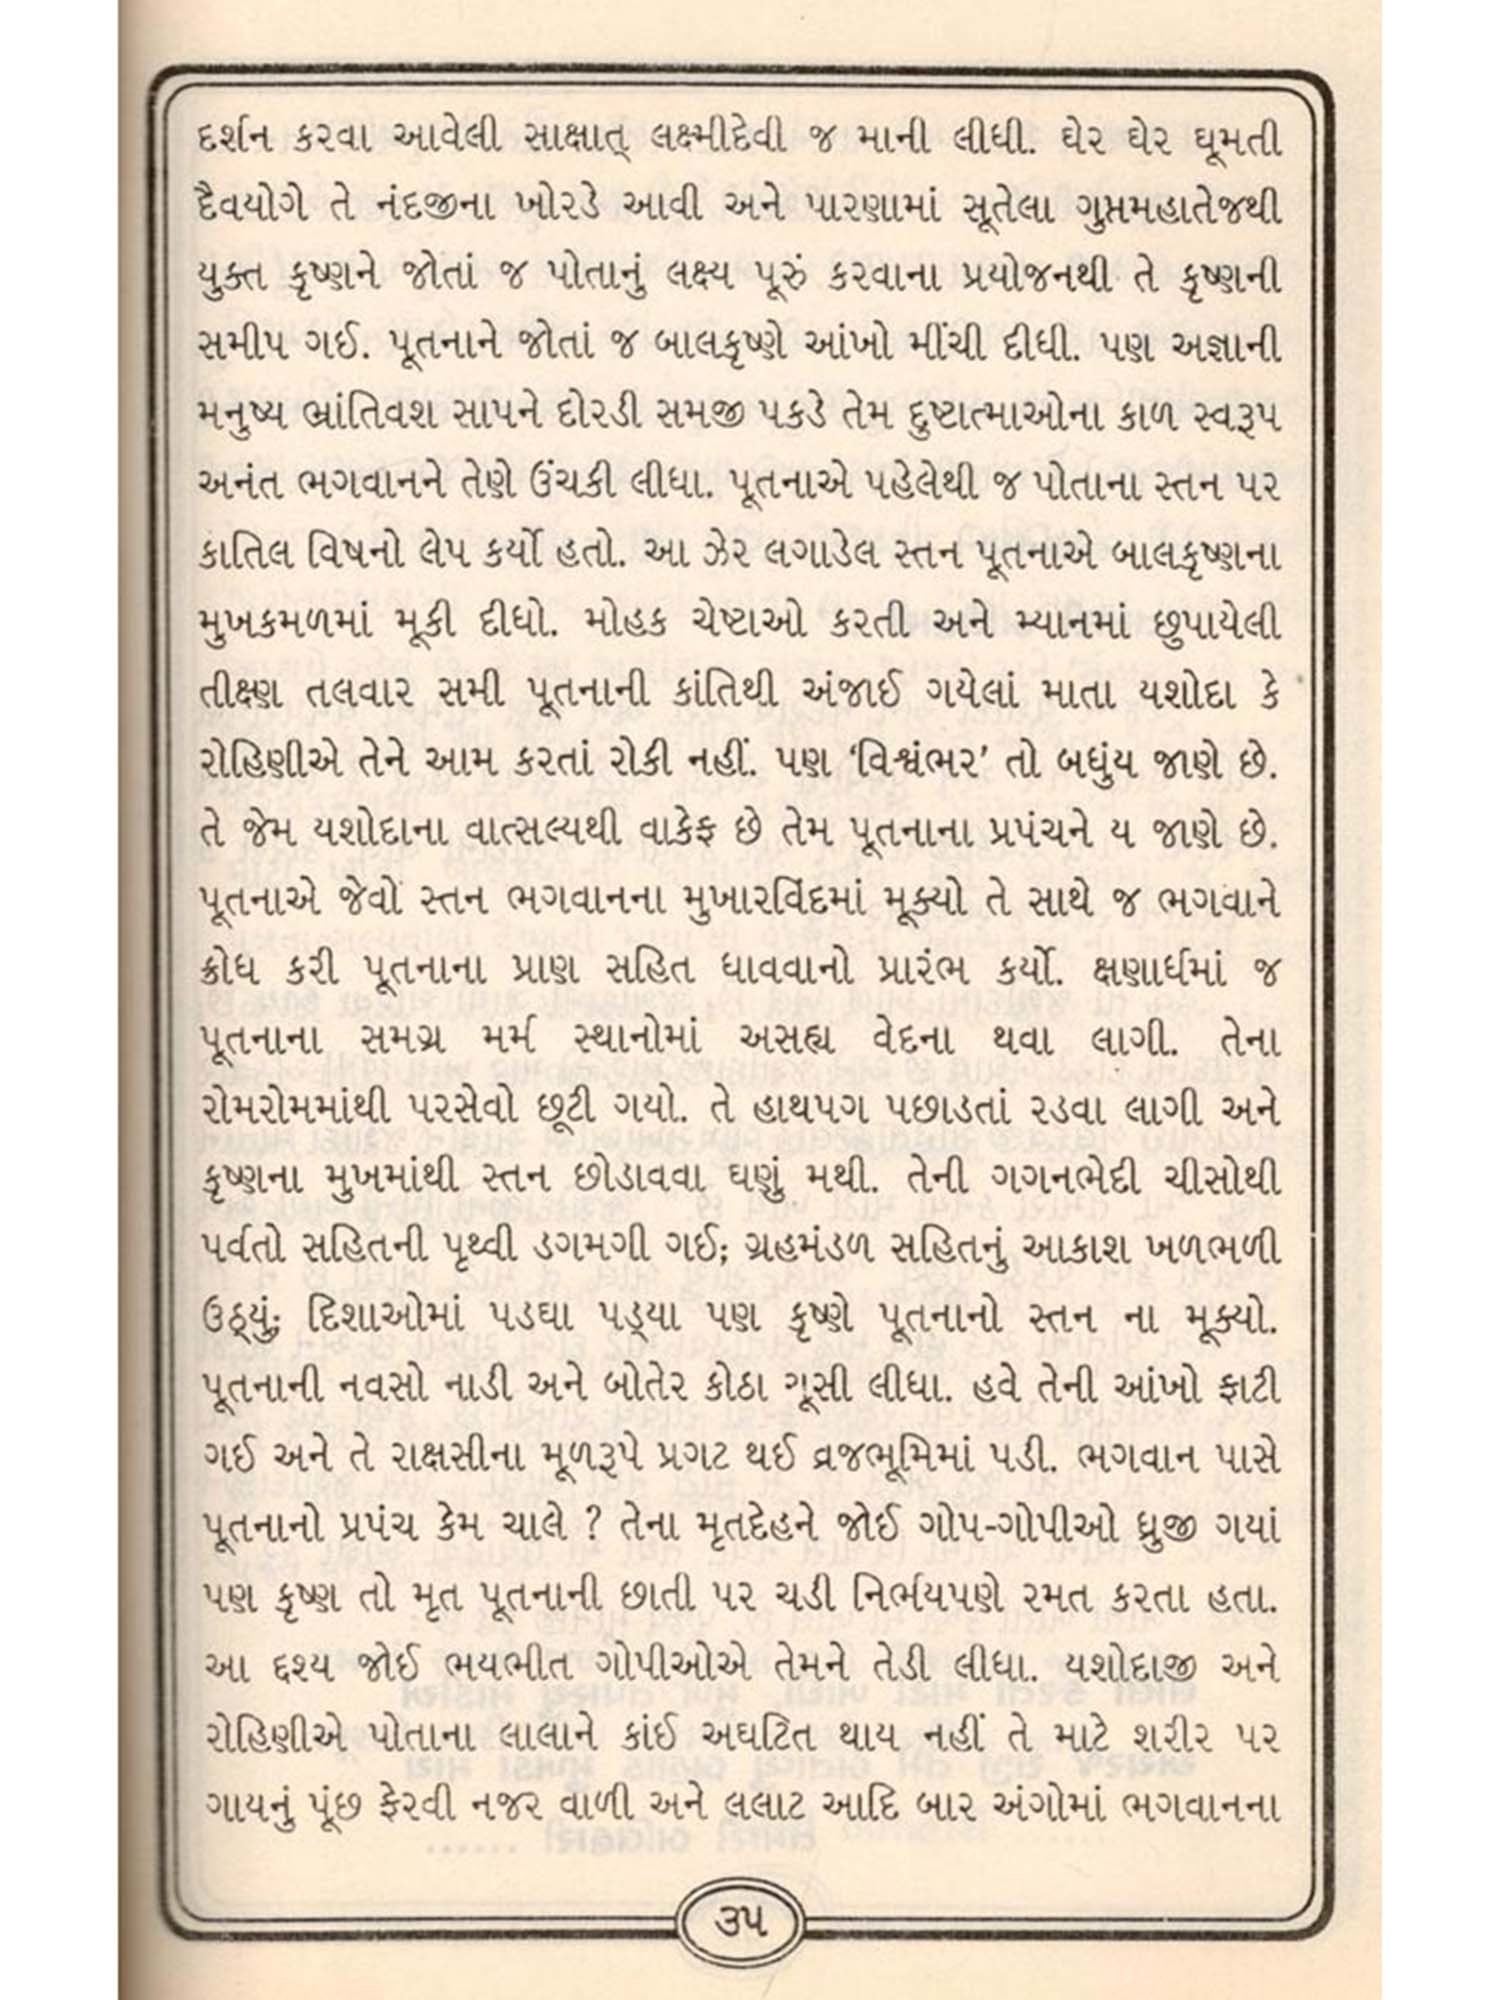 દર્શન કરવા આવેલી સાક્ષાત્ લક્ષ્મીદેવી જ માની લીધી. ઘેર ઘેર ઘૂમતી
દૈવયોગે તે નંદજીના ખોરડે આવી અને પારણામાં સૂતેલા ગુપ્તમહાતેજથી
યુક્ત કૃષ્ણને જોતાં જ પોતાનું લક્ષ્ય પૂરું કરવાના પ્રયોજનથી તે કૃષ્ણની
સમીપ ગઈ. પૂતનાને જોતાં જ બાલકૃષ્ણે આંખો મીંચી દીધી. પણ અજ્ઞાની
મનુષ્ય ભ્રાંતિવશ સાપને દોરડી સમજી પકડે તેમ દુષ્ટાત્માઓના કાળ સ્વરૂપ
અનંત ભગવાનને તેણે ઉંચકી લીધા. પૂતનાએ પહેલેથી જ પોતાના સ્તન પર
કાતિલ વિષનો લેપ કર્યો હતો. આ ઝેર લગાડેલ સ્તન પૂતનાએ બાલકૃષ્ણના
મુખકમળમાં મૂકી દીધો. મોહક ચેષ્ટાઓ કરતી અને મ્યાનમાં છુપાયેલી
તીક્ષ્ણ તલવાર સમી પૂતનાની કાંતિથી અંજાઈ ગયેલાં માતા યશોદા કે
રોહિણીએ તેને આમ કરતાં રોકી નહીં. પણ ‘વિશ્વંભર’ તો બધુંય જાણે છે.
તે જેમ યશોદાના વાત્સલ્યથી વાકેફ છે તેમ પૂતનાના પ્રપંચને ય જાણે છે.
પૂતનાએ જેવો સ્તન ભગવાનના મુખારવિંદમાં મૂક્યો તે સાથે જ ભગવાને
ક્રોધ કરી પૂતનાના પ્રાણ સહિત ધાવવાનો પ્રારંભ કર્યો. ક્ષણાર્ધમાં જ
પૂતનાના સમગ્ર મર્મ સ્થાનોમાં અસહ્ય વેદના થવા લાગી. તેના
રોમરોમમાંથી પરસેવો છૂટી ગયો. તે હાથપગ પછાડતાં રડવા લાગી અને
કૃષ્ણના મુખમાંથી સ્તન છોડાવવા ઘણું મથી. તેની ગગનભેદી ચીસોથી
પર્વતો સહિતની પૃથ્વી ડગમગી ગઈ; ગ્રહમંડળ સહિતનું આકાશ ખળભળી
ઉઠ્યું; દિશાઓમાં પડઘા પડ્યા પણ કૃષ્ણે પૂતનાનો સ્તન ના મૂક્યો.
પૂતનાની નવસો નાડી અને બોતેર કોઠા ચૂસી લીધા. હવે તેની આંખો ફાટી
ગઈ અને તે રાક્ષસીના મૂળરૂપે પ્રગટ થઈ વ્રજભૂમિમાં પડી. ભગવાન પાસે
પૂતનાનો પ્રપંચ કેમ ચાલે ? તેના મૃતદેહને જોઈ ગોપ-ગોપીઓ ધ્રુજી ગયાં
પણ કૃષ્ણ તો મૃત પૂતનાની છાતી પર ચડી નિર્ભયપણે રમત કરતા હતા.
આ દૃશ્ય જોઈ ભયભીત ગોપીઓએ તેમને તેડી લીધા. યશોદાજી અને
રોહિણીએ પોતાના લાલાને કાંઈ અઘટિત થાય નહીં તે માટે શરીર પર
ગાયનું પૂંછ ફેરવી નજર વાળી અને લલાટ આદિ બાર અંગોમાં ભગવાનના
૩૫